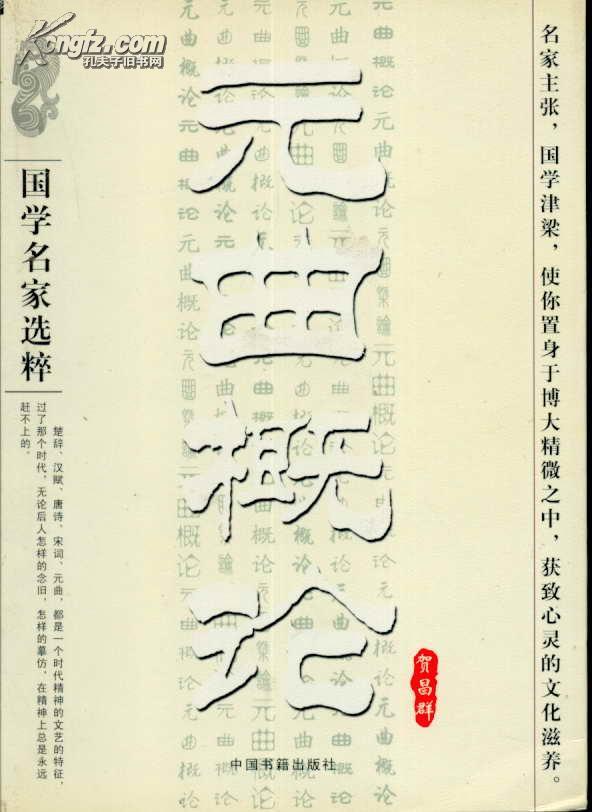 Kongfz.com
孔夫子旧书网
名家主张，国学津梁，使你置身于博大精微之中，获致心灵的文化滋养。
元曲概论
贺昌群
中国书籍出版社
国学名家选粹
楚辞、汉赋、唐诗、宋词、元曲，都是一个时代精神的文艺的特征，
过了那个时代，无论后人怎样的念旧，怎样的摹仿，在精神上总是永远
赶不上的。